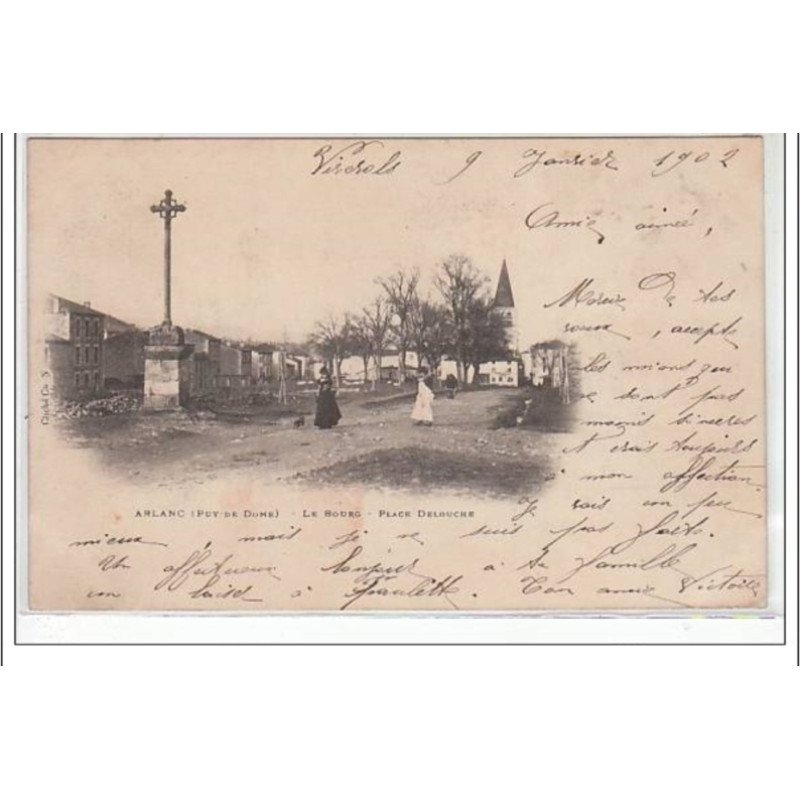 9 Janvier 1902
Amie aimée,
Merci de tes
vœux, accepte
les miens qui
ne sont pas
moins sincères
et crois toujours
à mon affection
Je vais un peu
ARLANC (PUY-DE DOME) - LE BOURG - PLACE DELOUCHE
mieux, mais je ne suis pas forte.
Un affectueux bonjour à ta famille
un baiser à Paulette. Ton amie Victoire
Cliché Ch. N